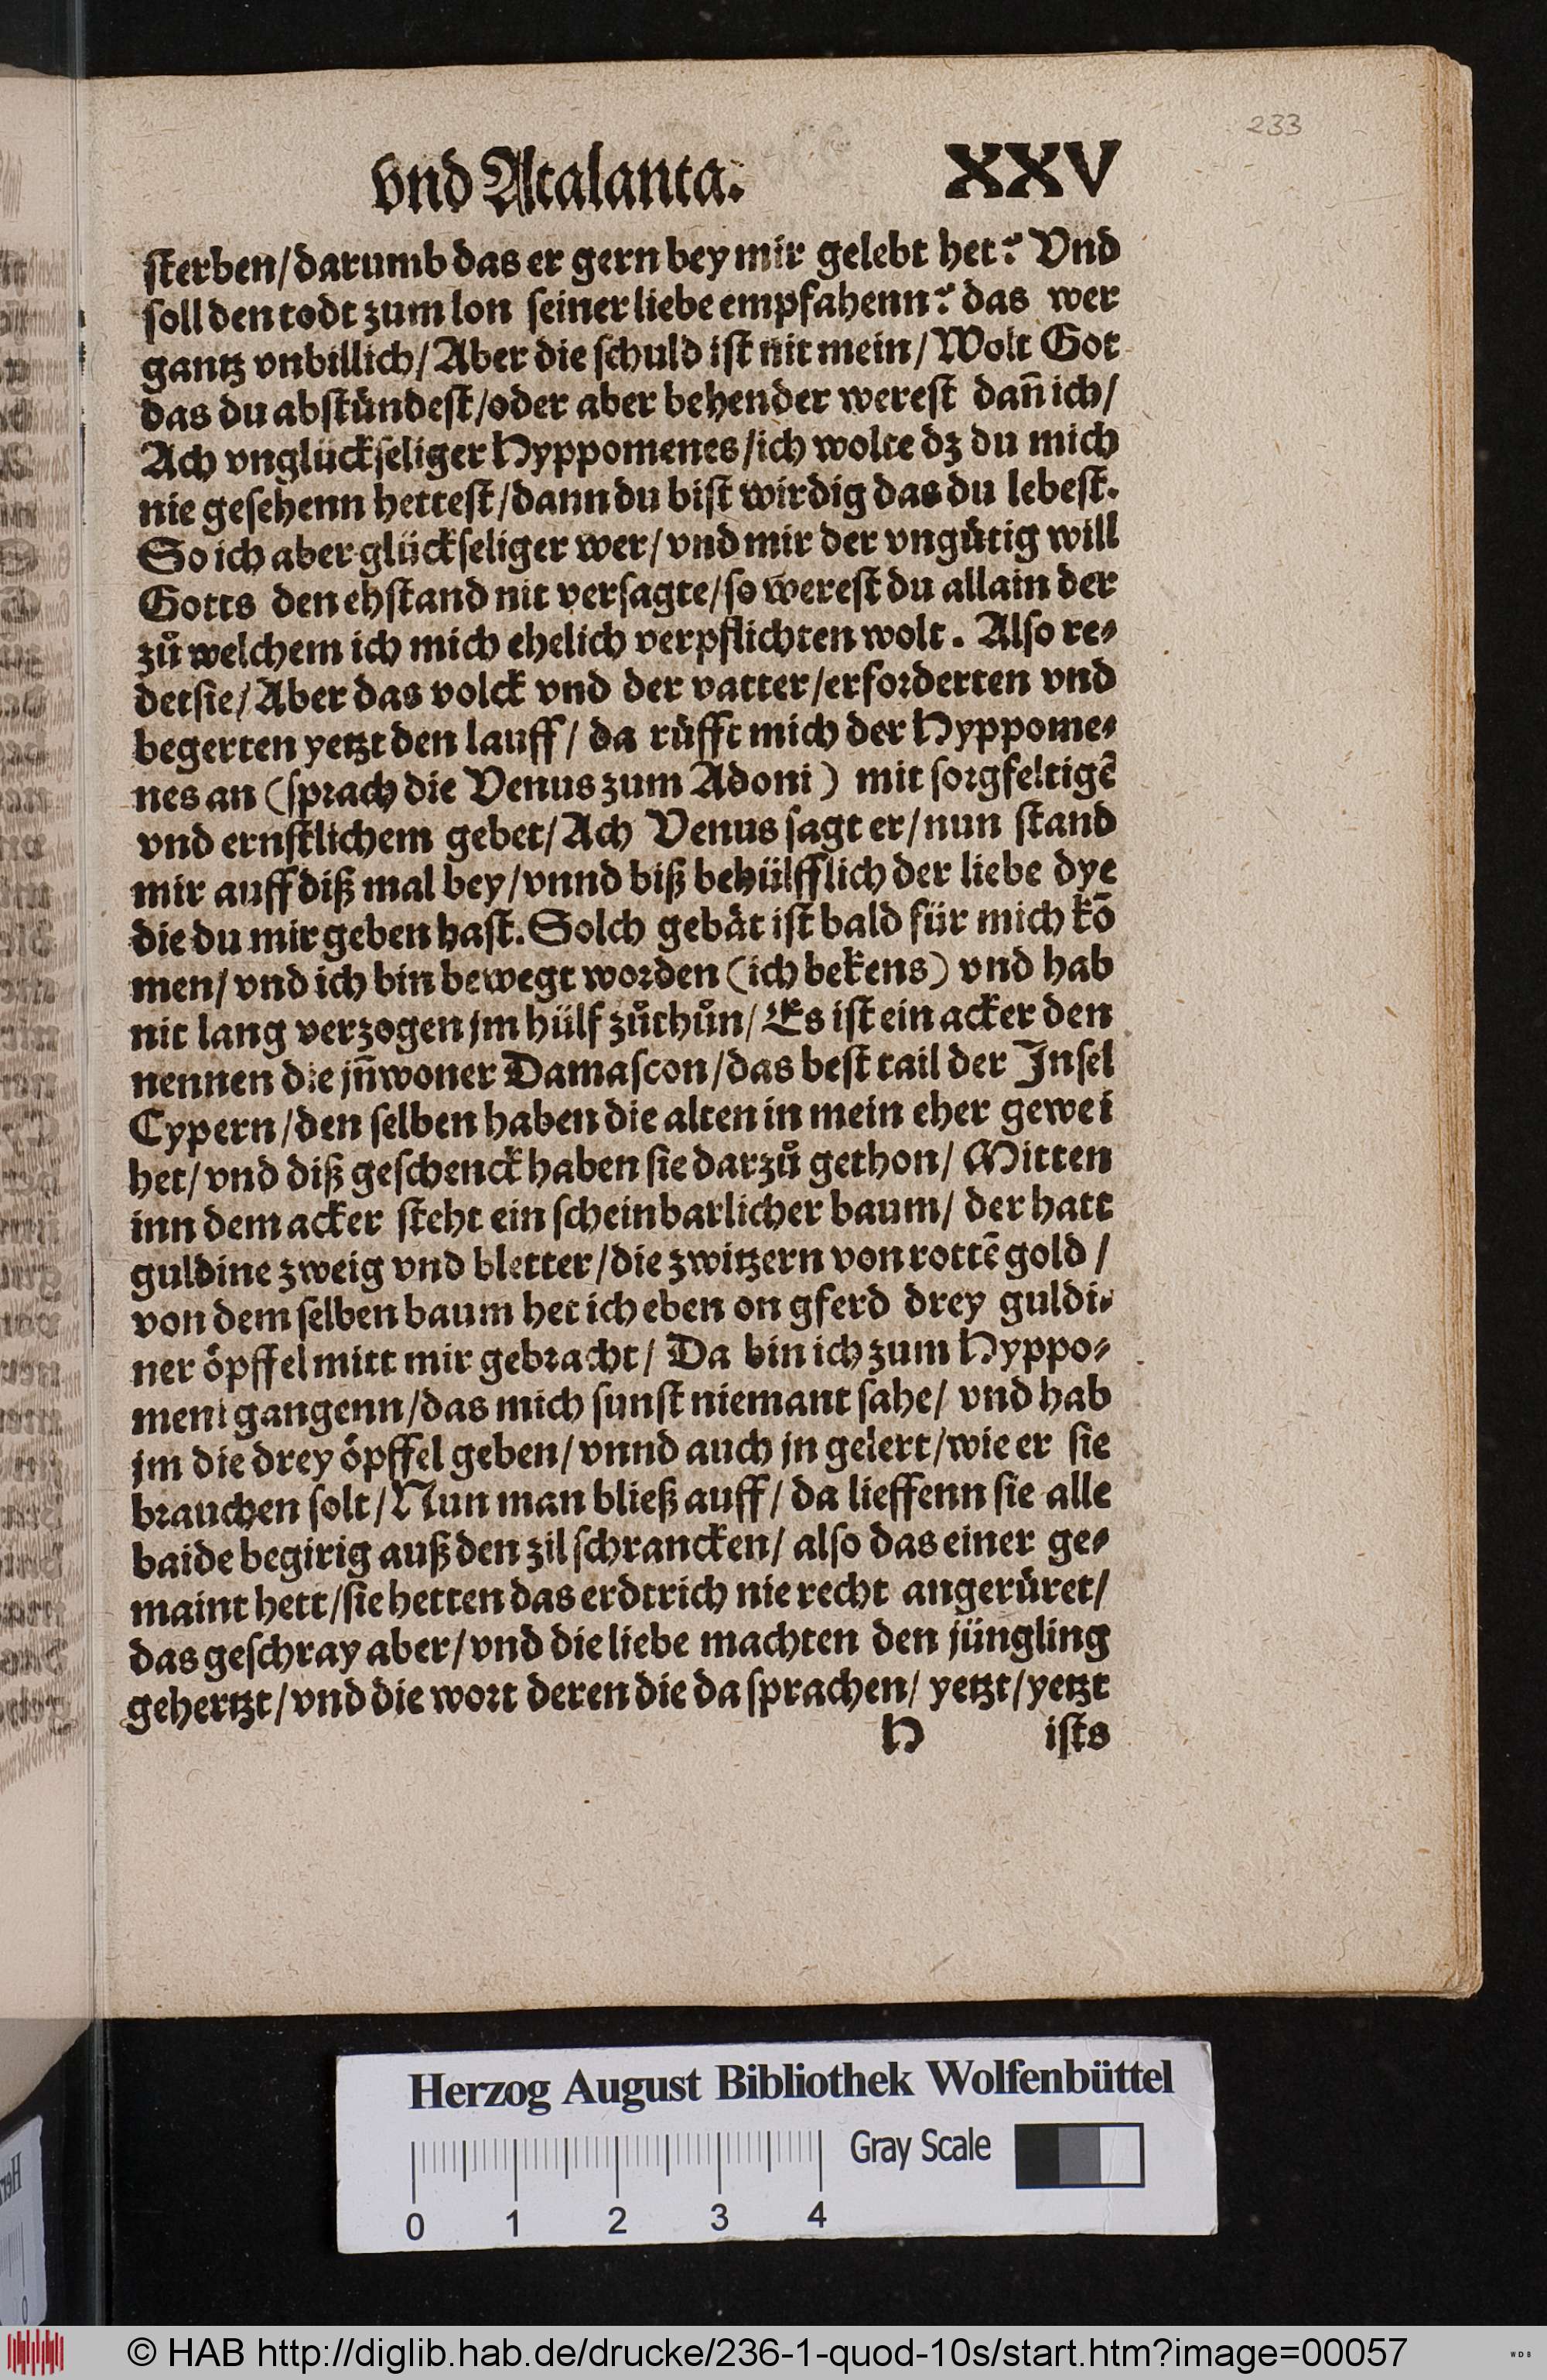 233
vnd Atalanta. XXV
ſterben/darumb das er gern bey mir gelebt het? Vnd
ſoll den todt zum lon ſeiner liebe empfahenn? das wer
gantz vnbillich/Aber die ſchuld iſt nit mein/Wolt Got
das du abſtündeſt/oder aber behender wereſt dañ ich/
Ach vnglückſeliger Hyppomenes/ich wolte dz du mich
nie geſehenn hetteſt/dann du biſt wirdig das du lebeſt.
So ich aber glückſeliger wer/vnd mir der vngütig will
Gotts den ehſtand nit verſagte/ſo wereſt du allain der
zuͦ welchem ich mich ehelich verpflichten wolt. Alſo re⸗
det ſie/Aber das volck vnd der vatter/erforderten vnd
begerten yetzt den lauff/ da rüfft mich der Hyppome⸗
nes an (ſprach die Venus zum Adoni) mit ſorgfeltigẽ
vnd ernſtlichem gebet/Ach Venus ſagt er/nun ſtand
mir auff diß mal bey/vnnd biß behülfflich der liebe dye
die du mir geben haſt. Solch gebät iſt bald für mich kõ
men/vnd ich bin bewegt worden (ich bekens) vnd hab
nit lang verzogen jm hülf zuͦthuͦn/Es iſt ein acker den
nennen die jñwoner Damaſcon/das beſt tail der Inſel
Cypern/den ſelben haben die alten in mein eher gewei
het/vnd diß geſchenck haben ſie darzuͦ gethon/ Mitten
inn dem acker ſteht ein ſcheinbarlicher baum/ der hatt
guldine zweig vnd bletter/die zwitzern von rottẽ gold /
von dem ſelben baum het ich eben on gferd drey guldi⸗
ner öpffel mitt mir gebracht/ Da bin ich zum Hyppo⸗
meni gangenn/das mich ſunſt niemant ſahe/ vnd hab
jm die drey öpffel geben/vnnd auch jn gelert/wie er ſie
brauchen ſolt/Nun man bließ auff/ da lieffenn ſie alle
baide begirig auß den zil ſchrancken/ alſo das einer ge⸗
maint hett/ſie hetten das erdtrich nie recht angerüret/
das geſchray aber/vnd die liebe machten den jüngling
gehertzt/vnd die wort deren die da ſprachen/ yetzt/yetzt
H iſts
Herzog August Bibliothek Wolfenbüttel
Gray Scale
0 1 2 3 4
© HAB http://diglib.hab.de/drucke/236-1-quod-10s/start.htm?image=00057